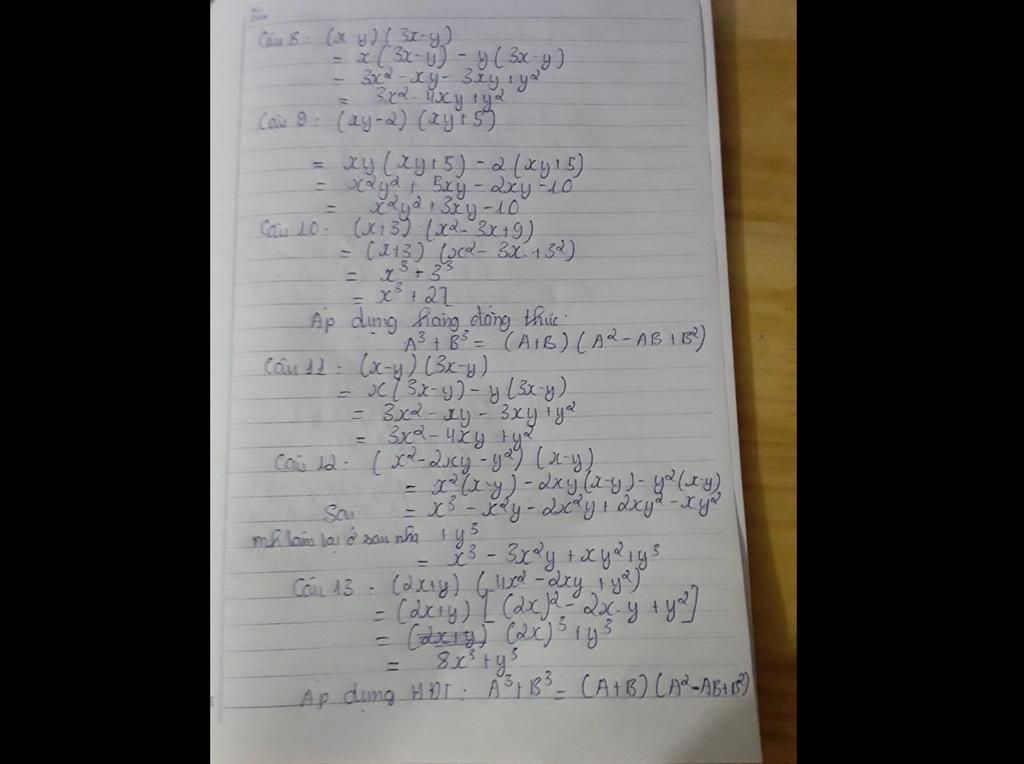 Câu 8: (x-y)(3x-y)
= x(3x-y) - y(3x-y)
= 3x² - xy - 3xy + y²
= 3x² - 4xy + y²
Câu 9: (xy-2)(xy+5)
= xy(xy+5) - 2(xy+5)
= x²y² + 5xy - 2xy - 10
= x²y² + 3xy - 10
Câu 10: (x+3)(x² - 3x + 9)
= (x+3)(x² - 3x + 3²)
= x³ + 3³
= x³ + 27
Áp dụng hằng đẳng thức:
A³ + B³ = (A+B)(A² - AB + B²)
Câu 11: (x-y)(3x-y)
= x(3x-y) - y(3x-y)
= 3x² - xy - 3xy + y²
= 3x² - 4xy + y²
Câu 12: (x² - 2xy - y²)(x-y)
= x²(x-y) - 2xy(x-y) - y²(x-y)
Sai = x³ - x²y - 2x²y + 2xy² - xy²
mh làm lại ở sau nha + y³
= x³ - 3x²y + xy² + y³
Câu 13: (2x+y)(4x² - 2xy + y²)
= (2x+y)[(2x)² - 2x.y + y²]
= (2x+y) (2x)³ + y³
= 8x³ + y³
Áp dụng HĐT: A³ + B³ = (A+B)(A² - AB + B²)